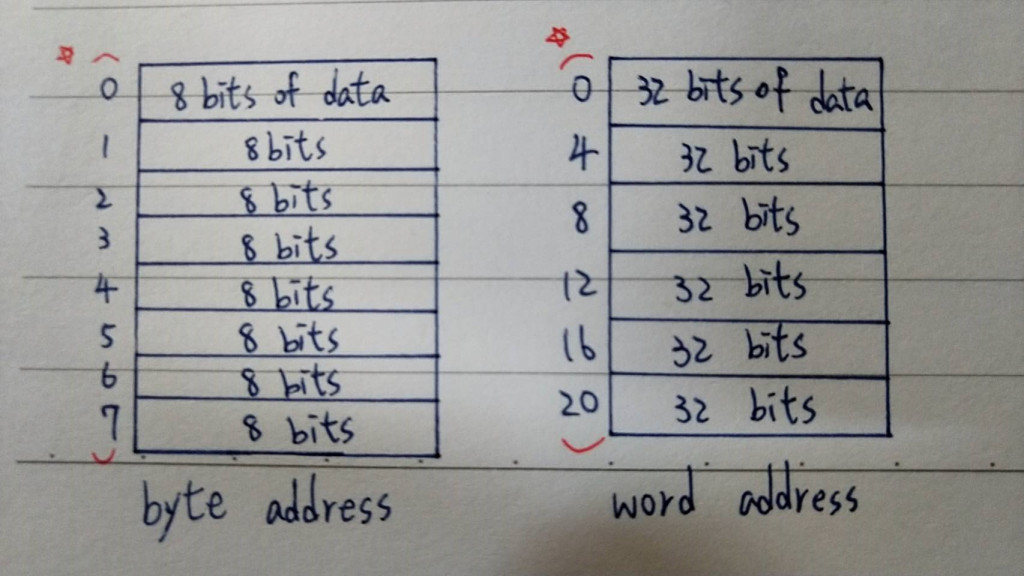 0 8 bits of data
1 8 bits
2 8 bits
3 8 bits
4 8 bits
5 8 bits
6 8 bits
7 8 bits
byte address
0 32 bits of data
4 32 bits
8 32 bits
12 32 bits
16 32 bits
20 32 bits
word address